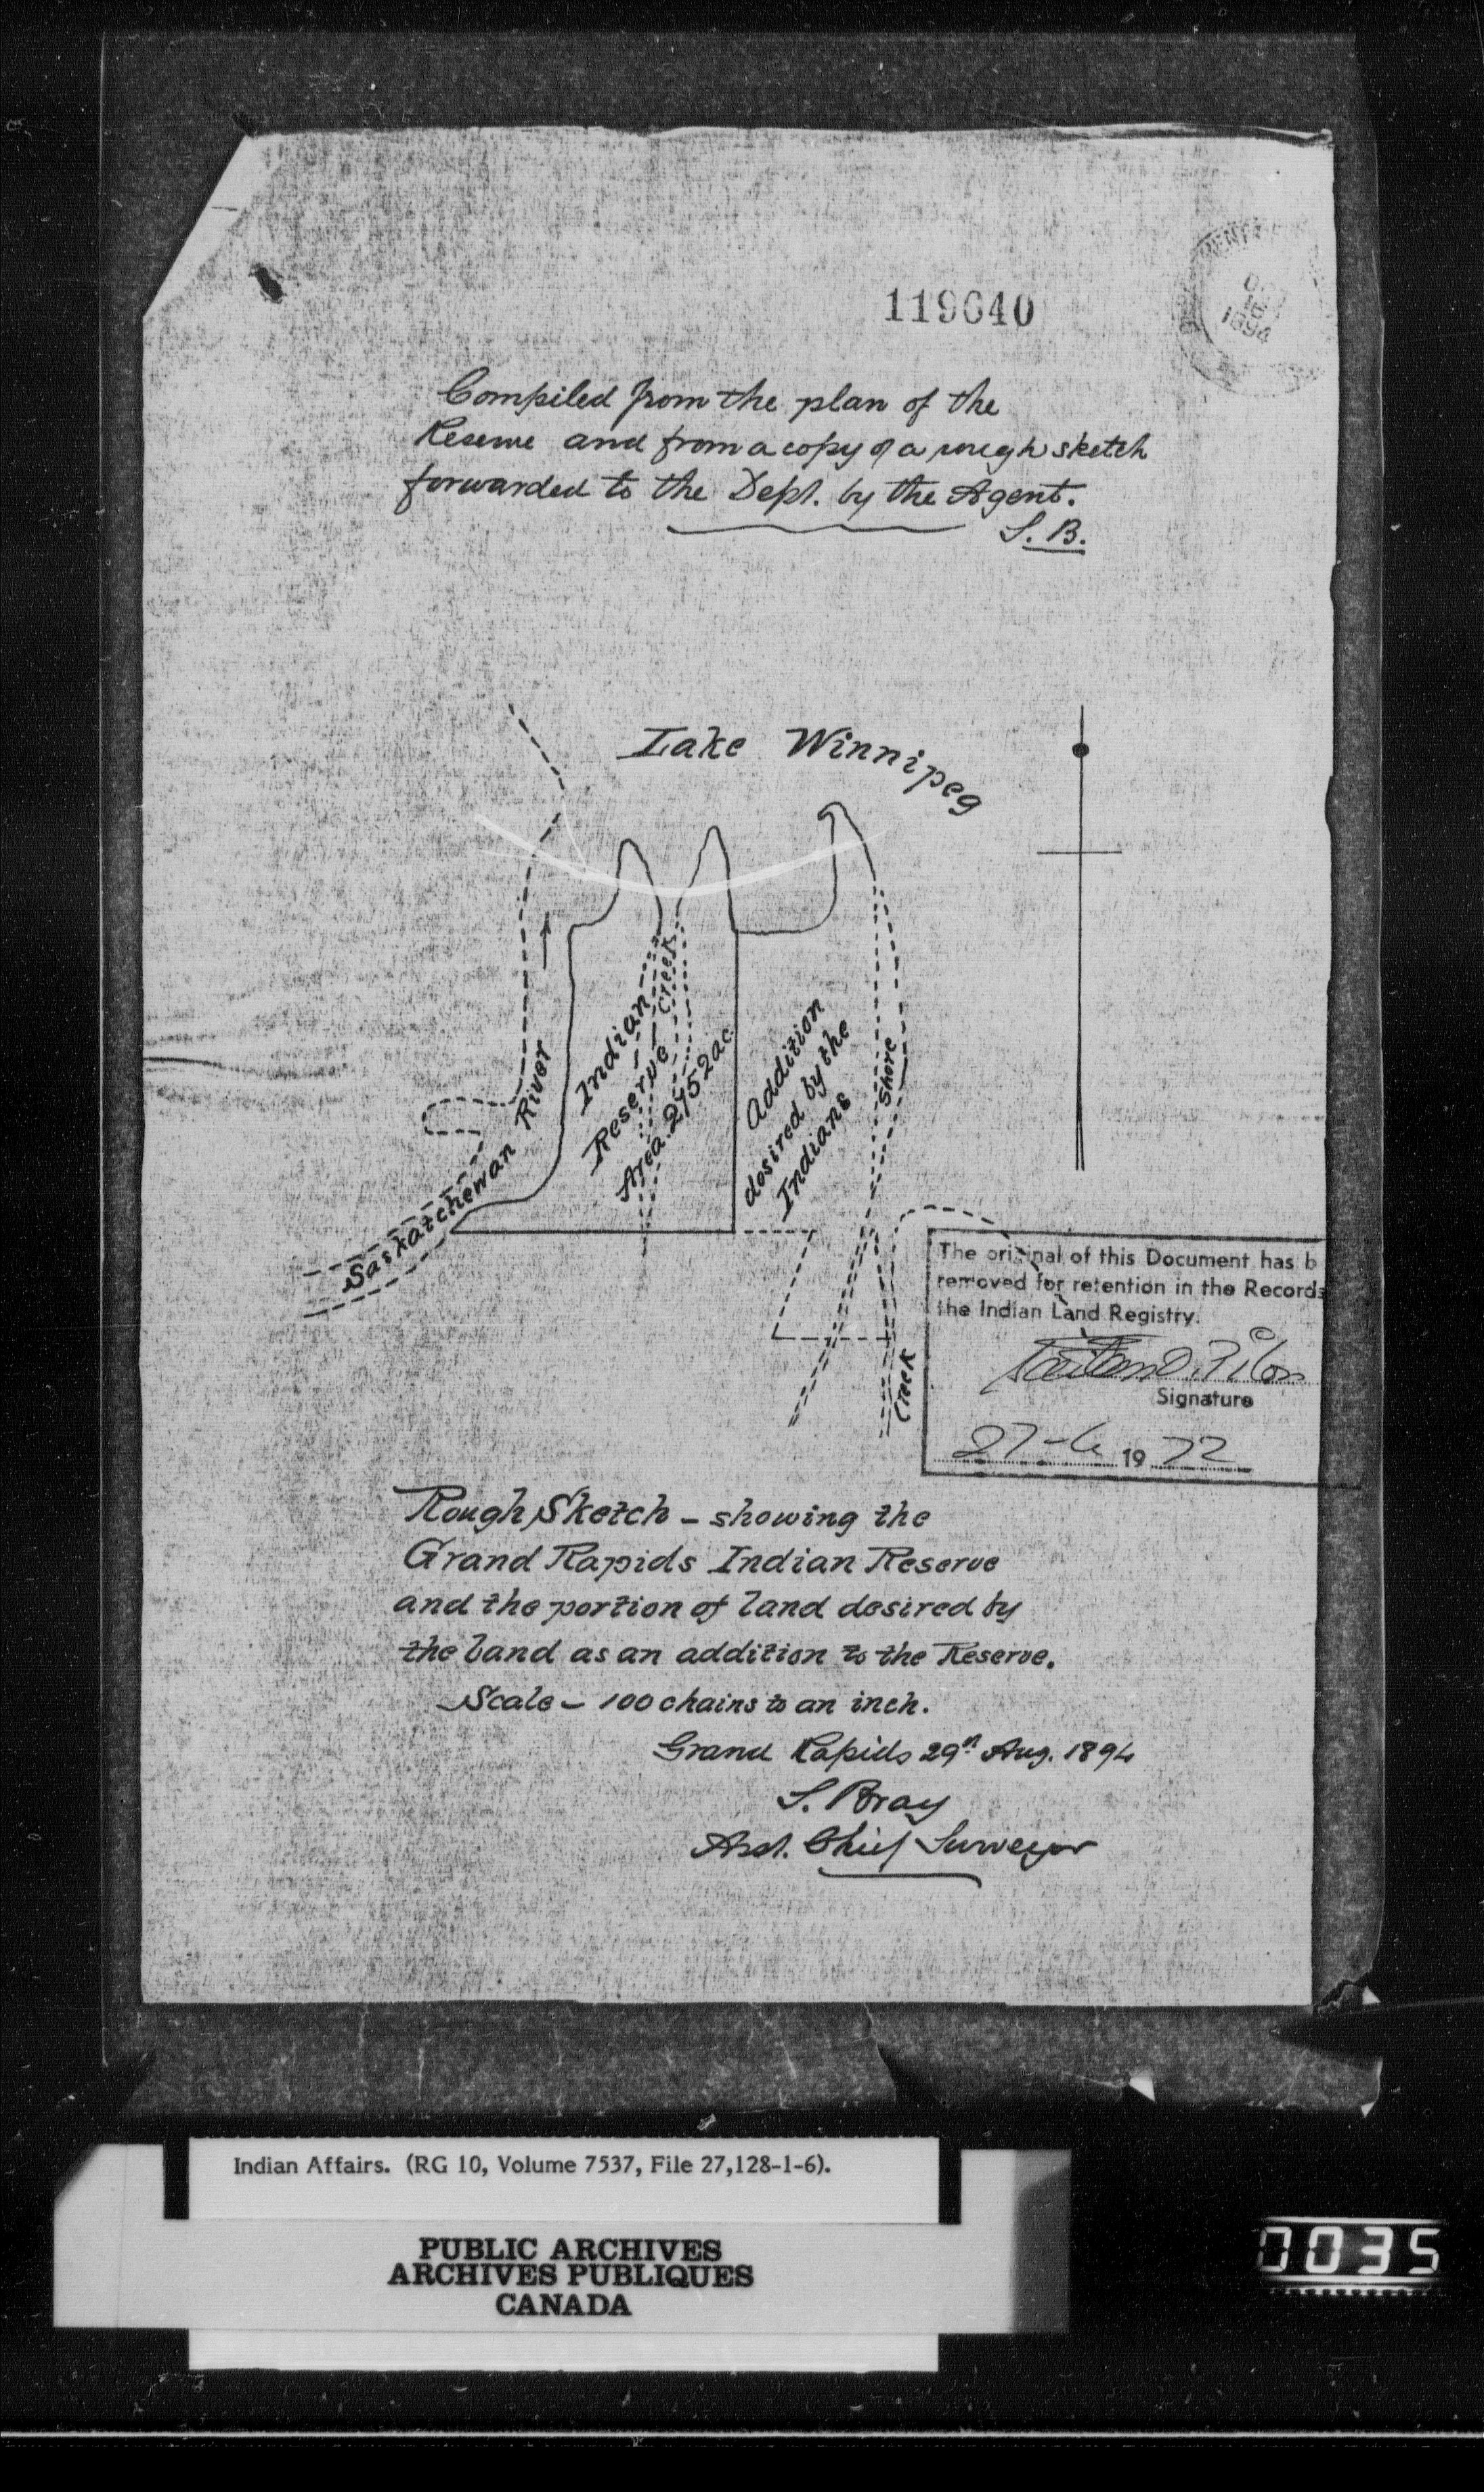 119640
OCT
16
1894
Compiled from the plan of the
Reserve and from a copy of a rough sketch
forwarded to the Dept. by the Agent.
S. B.
Lake Winnipeg
Indian
Reserve
Creek
Area
ac.
Addition
desired by the
Indians
Shore
Saskatchewan River
Creek
The original of this Document has b
removed for retention in the Records
the Indian Land Registry.
Signature
27-6 1972
Rough Sketch – showing the
Grand Rapids Indian Reserve
and the portion of land desired by
the band as an addition to the Reserve.
Scale – 100 chains to an inch.
Grand Rapids 29th Aug. 1894
S. Bray
Asst. Chief Surveyor
Indian Affairs. (RG 10, Volume 7537, File 27,128-1-6).
PUBLIC ARCHIVES
ARCHIVES PUBLIQUES
CANADA
0035